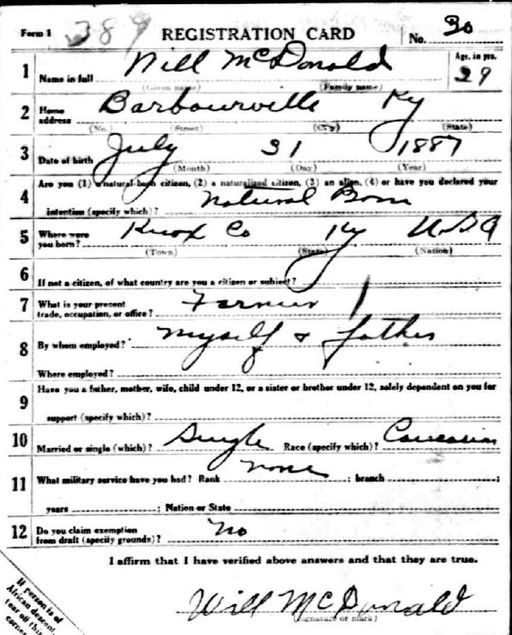 Form 1 389 REGISTRATION CARD No. 30
1 Name in full Will McDonald Age, in yrs. 29
(Given name) (Family name)
2 Home address Barbourville Ky
(No.) (Street) (City) (State)
3 Date of birth July 31 1887
(Month) (Day) (Year)
4 Are you (1) a natural-born citizen, (2) a naturalized citizen, (3) an alien, (4) or have you declared your
intention (specify which)? Natural Born
5 Where were you born? Knox Co Ky USA
(Town) (State) (Nation)
6 If not a citizen, of what country are you a citizen or subject?
7 What is your present trade, occupation, or office? Farmer
8 By whom employed? Myself & father
Where employed?
9 Have you a father, mother, wife, child under 12, or a sister or brother under 12, solely dependent on you for
support (specify which)?
10 Married or single (which)? Single Race (specify which)? Caucasian
11 What military service have you had? Rank none ; branch ;
years ; Nation or State
12 Do you claim exemption from draft (specify grounds)? No
I affirm that I have verified above answers and that they are true.
Will McDonald
(Signature or mark)
If person is of
African descent,
tear off this
corner